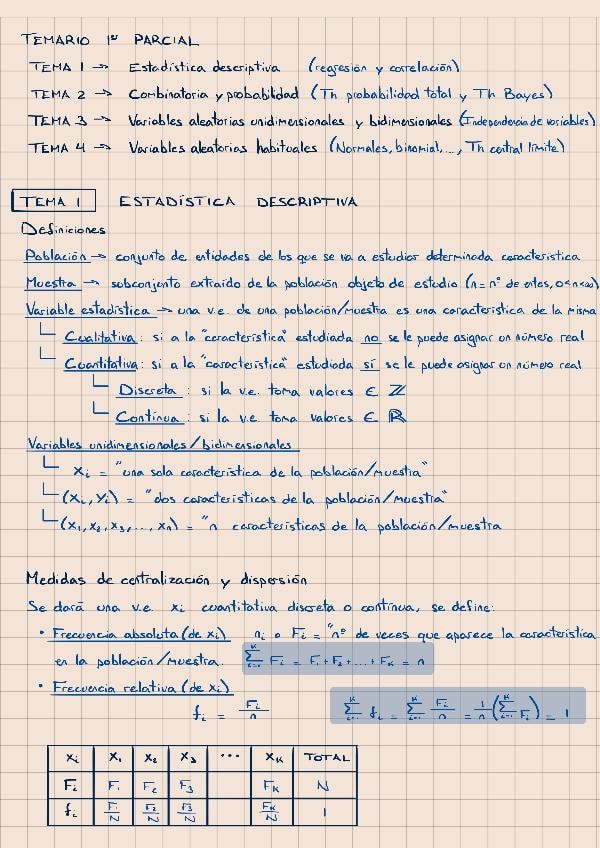 TEMARIO 1º PARCIAL
TEMA 1 → Estadística descriptiva (regresión y correlación)
TEMA 2 → Combinatoria y probabilidad (Th probabilidad total y Th Bayes)
TEMA 3 → Variables aleatorias unidimensionales y bidimensionales (Independencia de variables)
TEMA 4 → Variables aleatorias habituales (Normales, binomial, ..., Th central límite)
TEMA 1 ESTADÍSTICA DESCRIPTIVA
Definiciones
Población → conjunto de entidades de los que se va a estudiar determinada característica
Muestra → subconjunto extraído de la población objeto de estudio (n = nº de entes, 0<n<∞)
Variable estadística → una v.e. de una población/muestra es una característica de la misma
Cualitativa: si a la "característica" estudiada no se le puede asignar un número real
Cuantitativa: si a la "característica" estudiada sí se le puede asignar un número real
Discreta: si la v.e. toma valores ∈ ℤ
Contínua: si la v.e. toma valores ∈ ℝ
Variables unidimensionales/bidimensionales
xᵢ = "una sola característica de la población/muestra"
(xᵢ, yᵢ) = "dos características de la población/muestra"
(x₁, x₂, x₃, ..., xₙ) = "n características de la población/muestra
Medidas de centralización y dispersión
Se dará una v.e. xᵢ cuantitativa discreta o contínua, se define:
• Frecuencia absoluta (de xᵢ) nᵢ o Fᵢ = "nº de veces que aparece la característica
en la población/muestra. ∑ᵢ₌₁ᴷ Fᵢ = F₁ + F₂ + ... + Fₖ = n
• Frecuencia relativa (de xᵢ)
fᵢ = Fᵢ/n ∑ᵢ₌₁ᴷ fᵢ = ∑ᵢ₌₁ᴷ Fᵢ/n = 1/n (∑ᵢ₌₁ᴷ Fᵢ) = 1
xᵢ x₁ x₂ x₃ ... xₖ TOTAL
Fᵢ F₁ F₂ F₃ Fₖ N
fᵢ F₁/N F₂/N F₃/N Fₖ/N 1